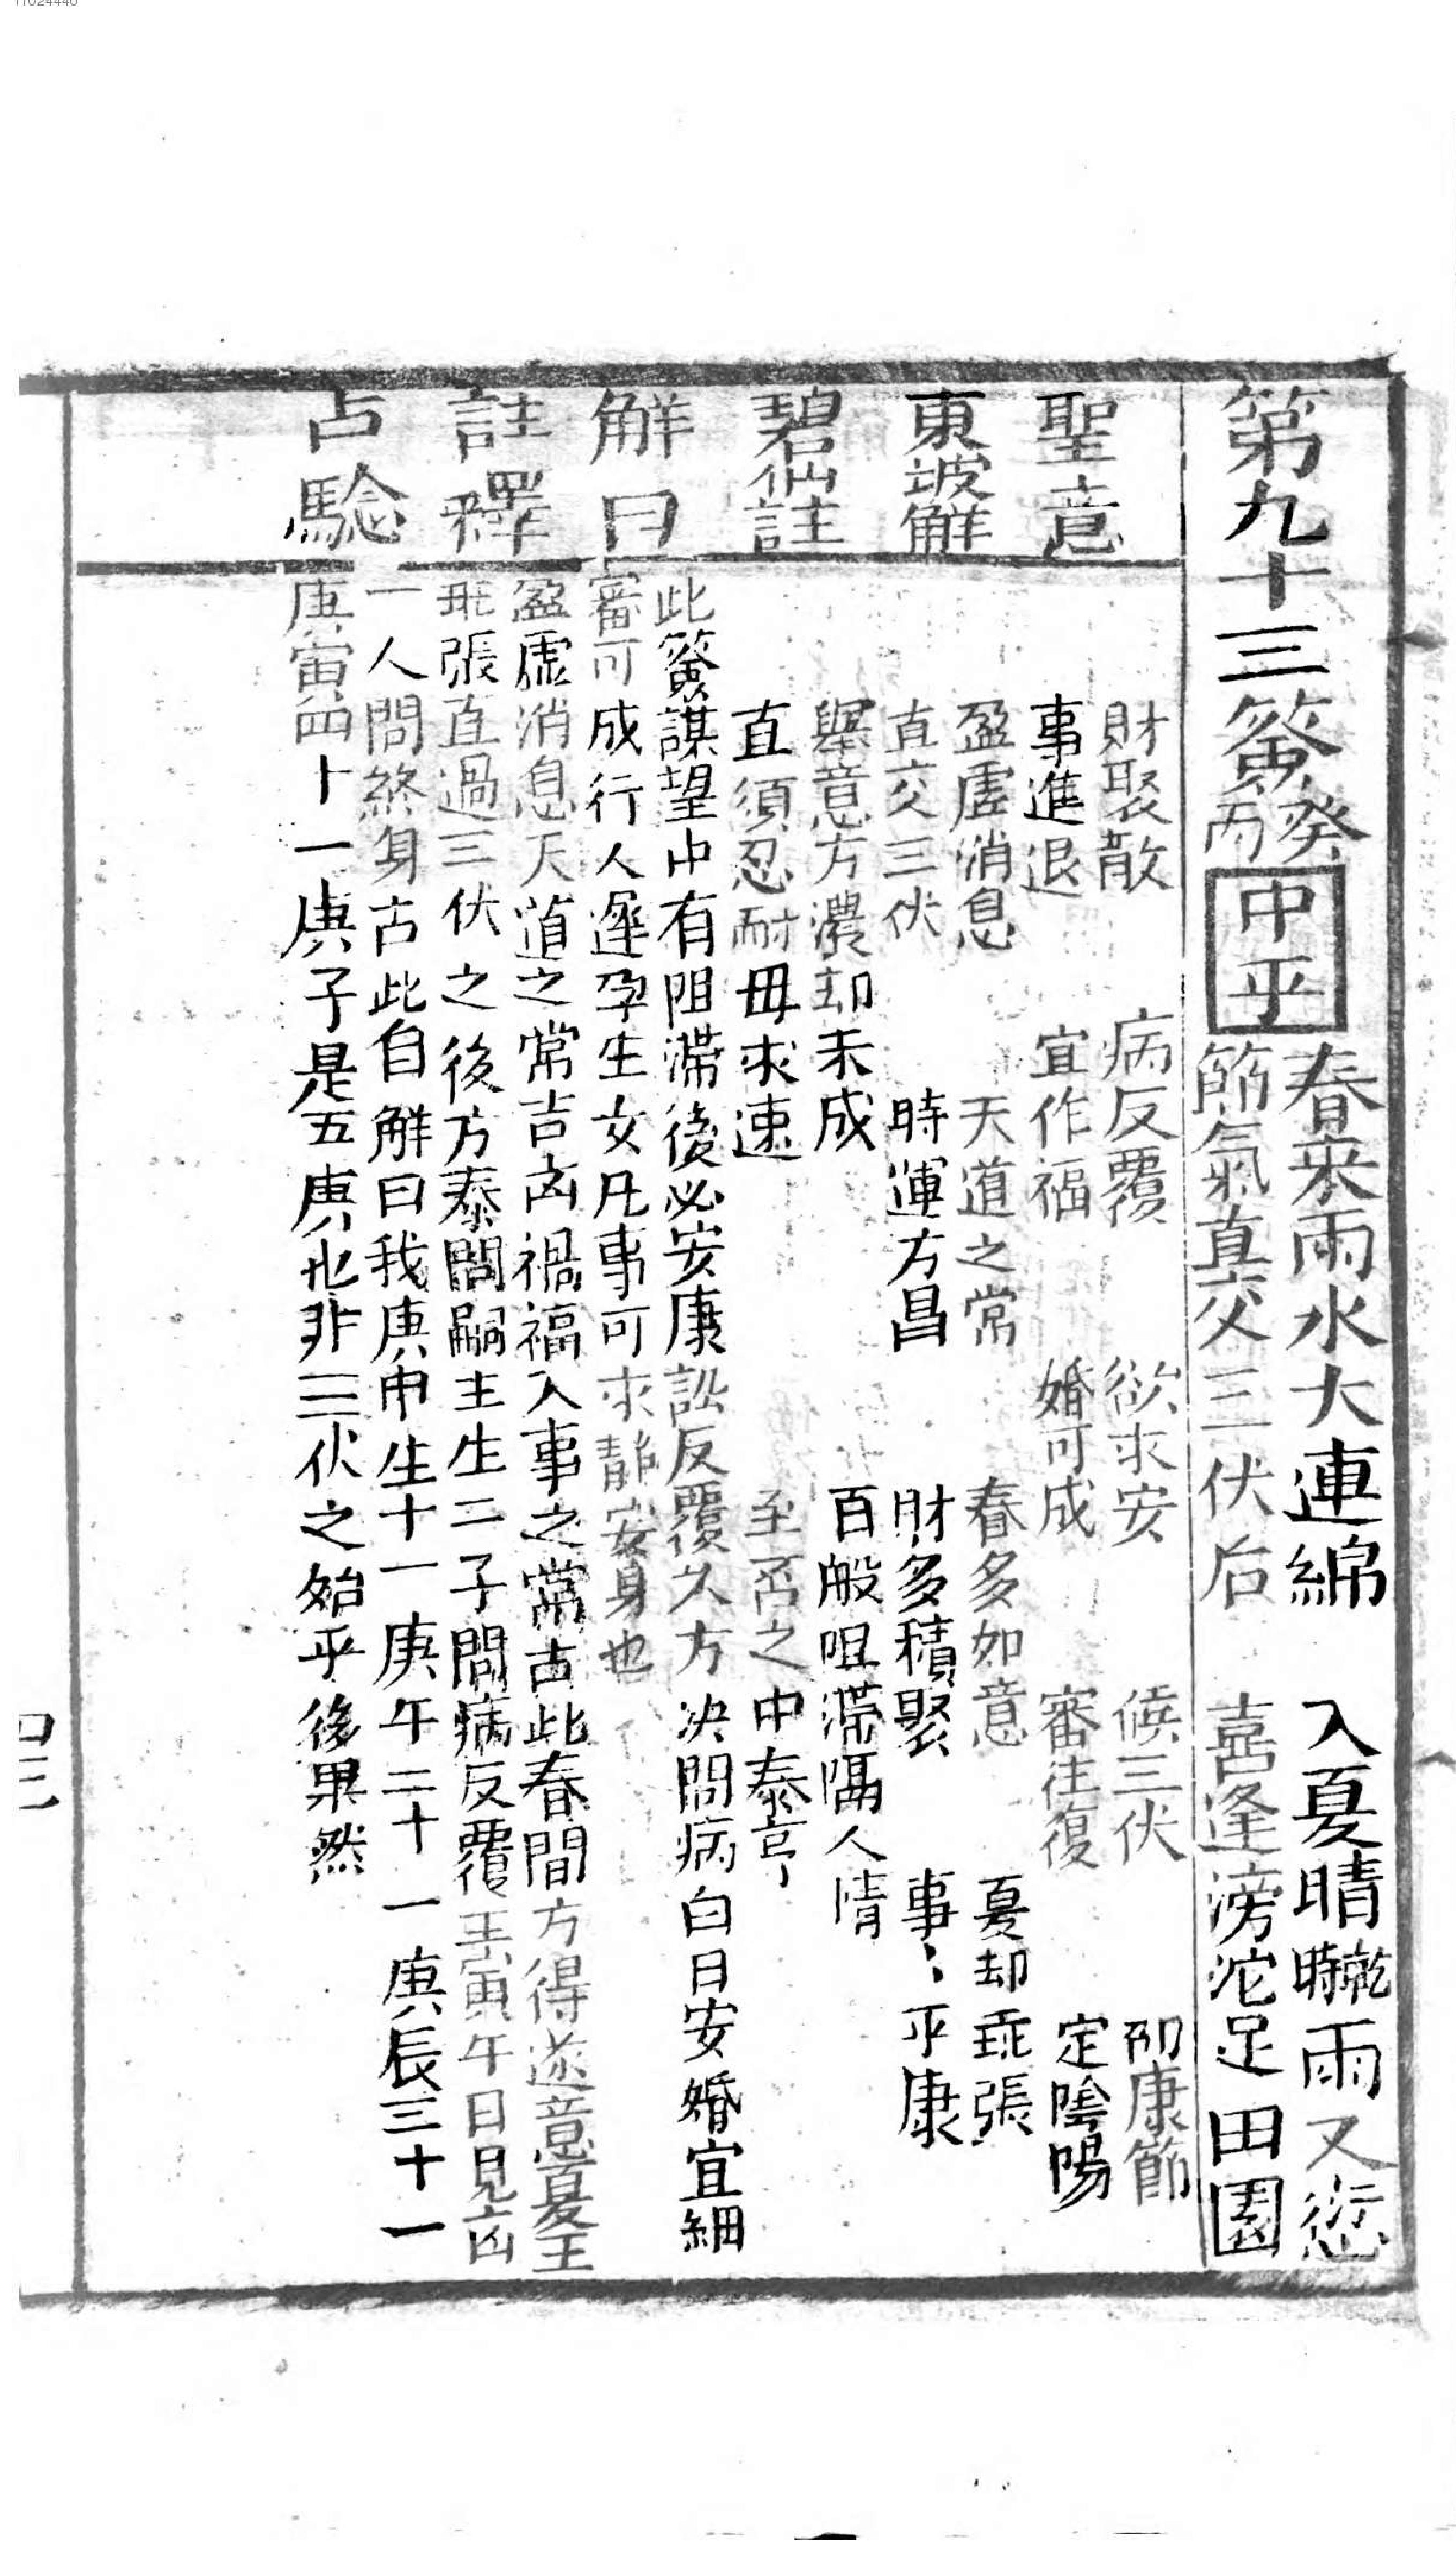 11024440
第九十三籤
癸
丙
中平
春來雨水大連綿 入夏晴時乾雨又愆
節氣直交三伏后 喜逢滂沱足田園
聖意
財聚散 病反覆 欲求安 候三伏 即康節
事進退 宜作福 婚可成 審往復 定陰陽
東坡解
盈虛消息 天道之常 春多如意 夏却乖張
直交三伏 時運方昌 財多積聚 事〻平康
碧仙註
舉意方濃却未成 百般阻滯隔人情
直須忍耐毋求速 至否之中泰亨
解曰
此籤謀望中有阻滯後必安康訟反覆久方决問病白日安婚宜細
審可成行人遲孕生女凡事可求靜安身也
註釋
盈虛消息天道之常吉凶禍福入事之常占此春間方得遂意夏主
乖張直過三伏之後方泰問嗣主生二子問病反覆壬寅午日見凶
占驗
一人問終身占此自解曰我庚申生十一庚午二十一庚辰三十一
庚寅四十一庚子是五庚也非三伏之始乎後果然
四三